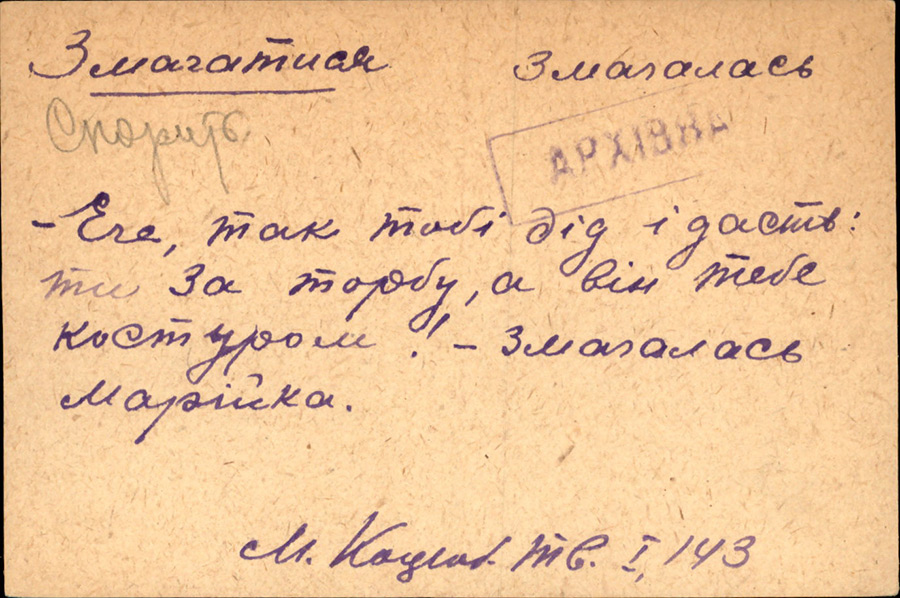 Змагатися Змагалась
Спорить
АРХІВНА
– Еге, так тобі дід і дасть:
ти за торбу, а він тебе
костуром! – Змагалась
Марійка.
М. Коцюб. Тв. I, 143